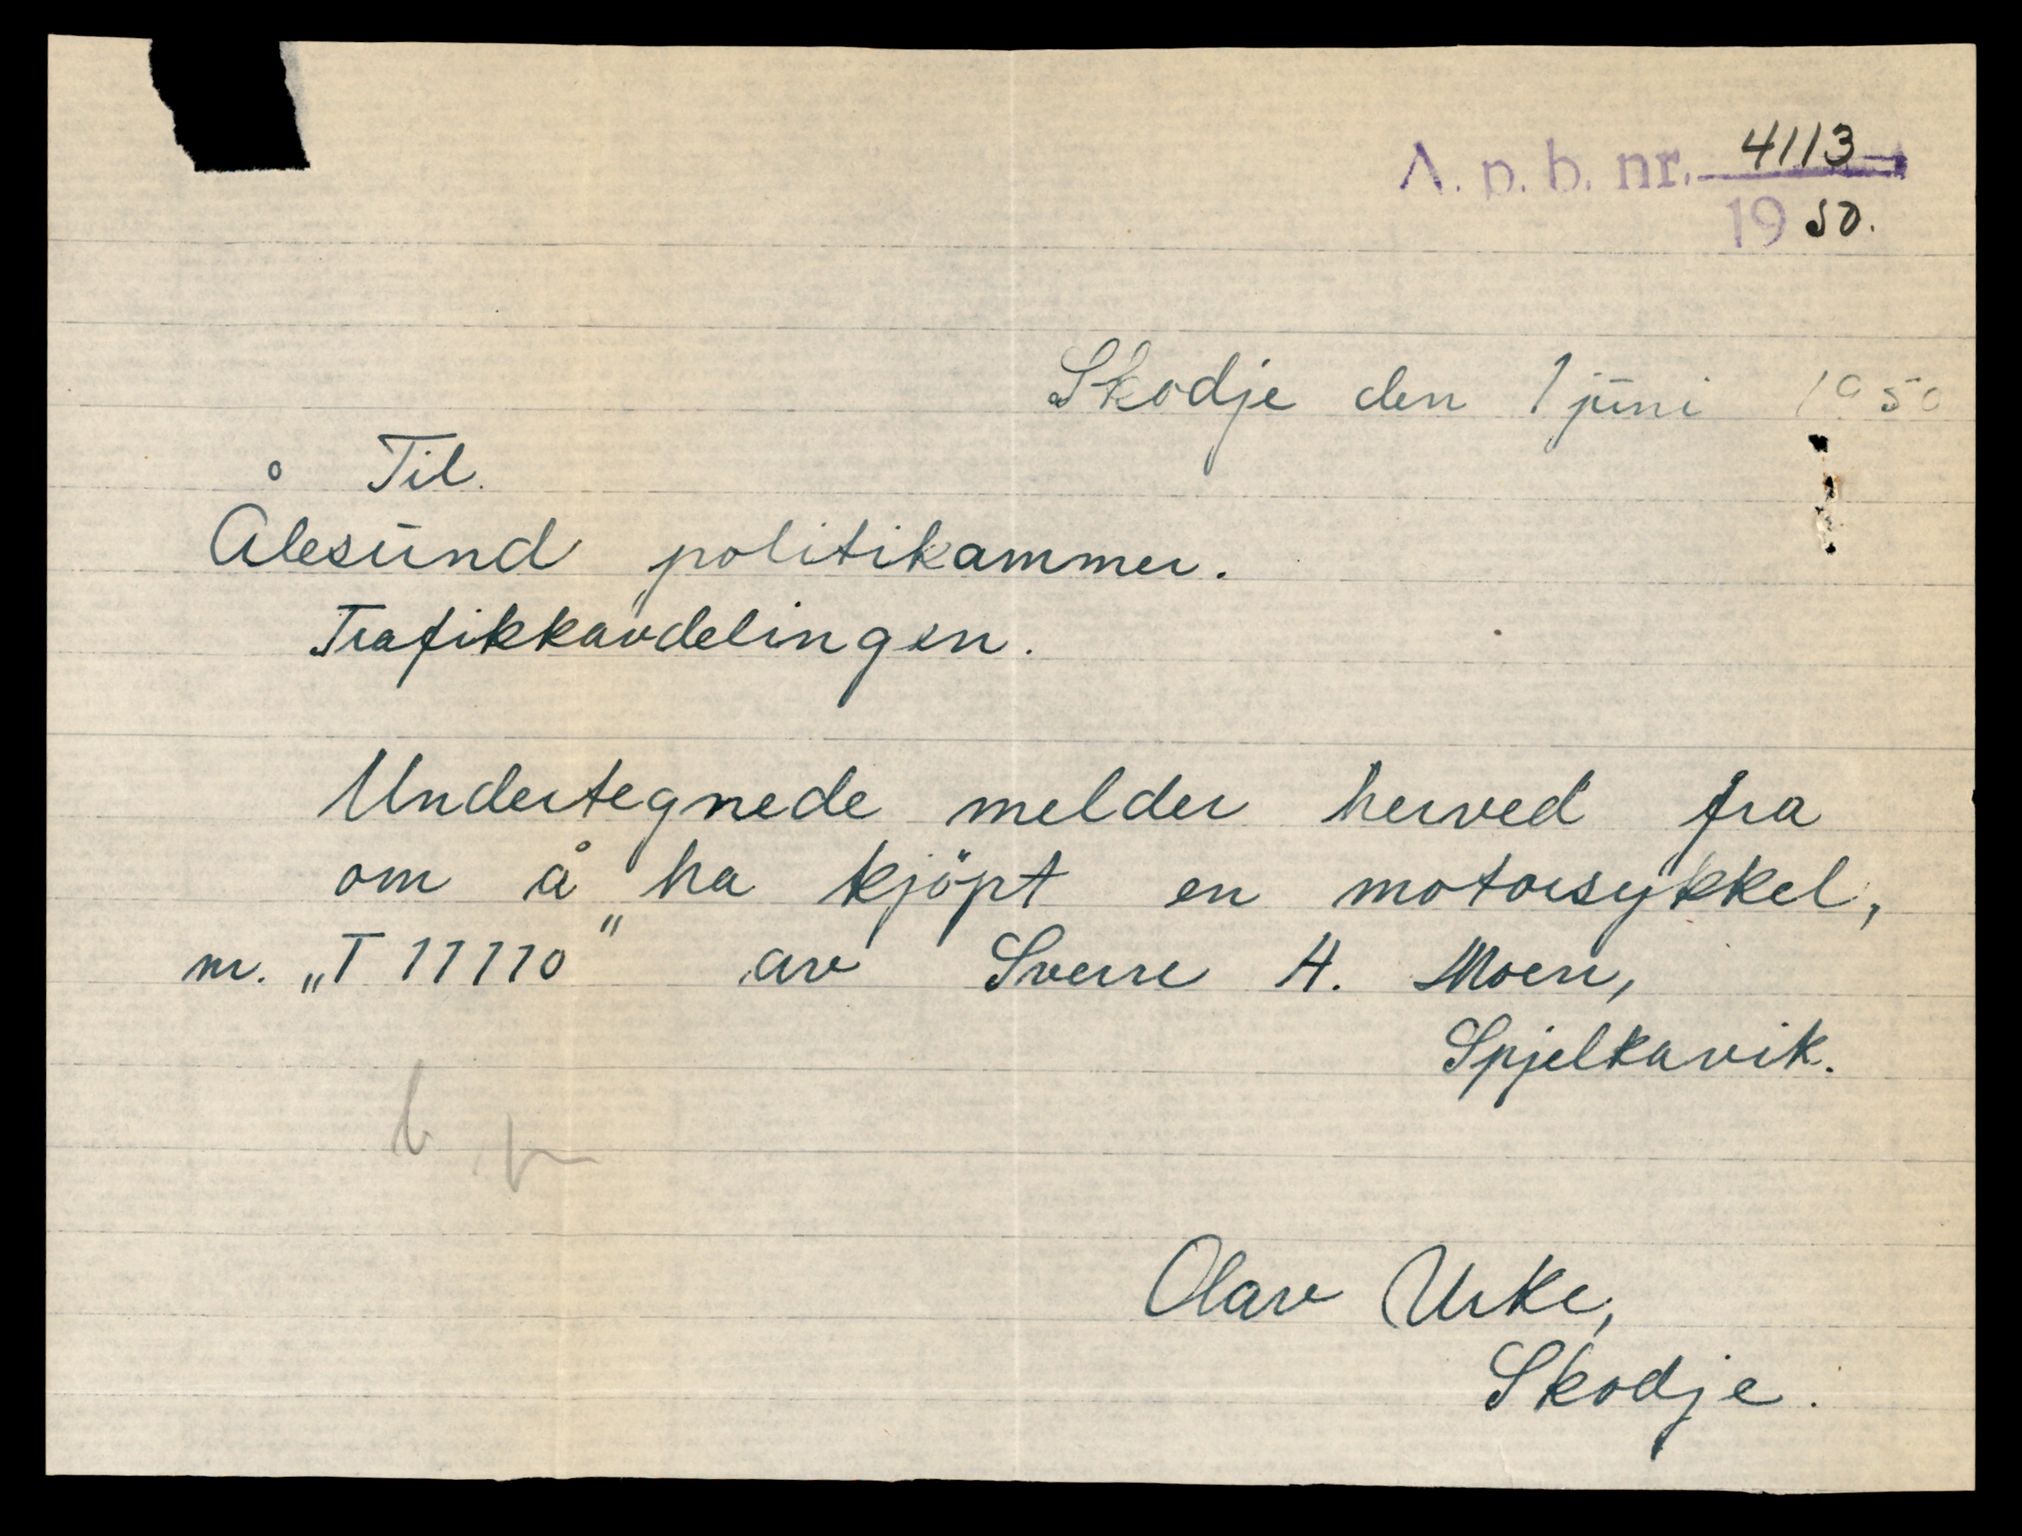 A. p. b. nr. 4113
19 50.
Skodje den 1 juni 1950
Til.
Ålesund politikammer.
Trafikkavdelingen.
Undertegnede melder herved fra
om å ha kjöpt en motorsykkel,
nr. „T 11110” av Sverre H. Moen,
Spjelkavik.
Olav Urke,
Skodje.